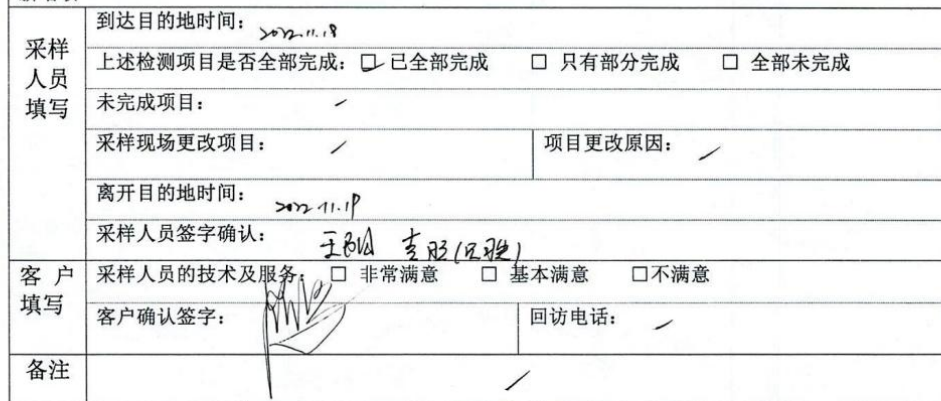 采样人员填写
到达目的地时间： 2022.11.18
上述检测项目是否全部完成：☑ 已全部完成 □ 只有部分完成 □ 全部未完成
未完成项目： /
采样现场更改项目： / 项目更改原因： /
离开目的地时间： 2022.11.19
采样人员签字确认：
客户填写
采样人员的技术及服务： □ 非常满意 □ 基本满意 □不满意
客户确认签字： 回访电话： /
备注 /